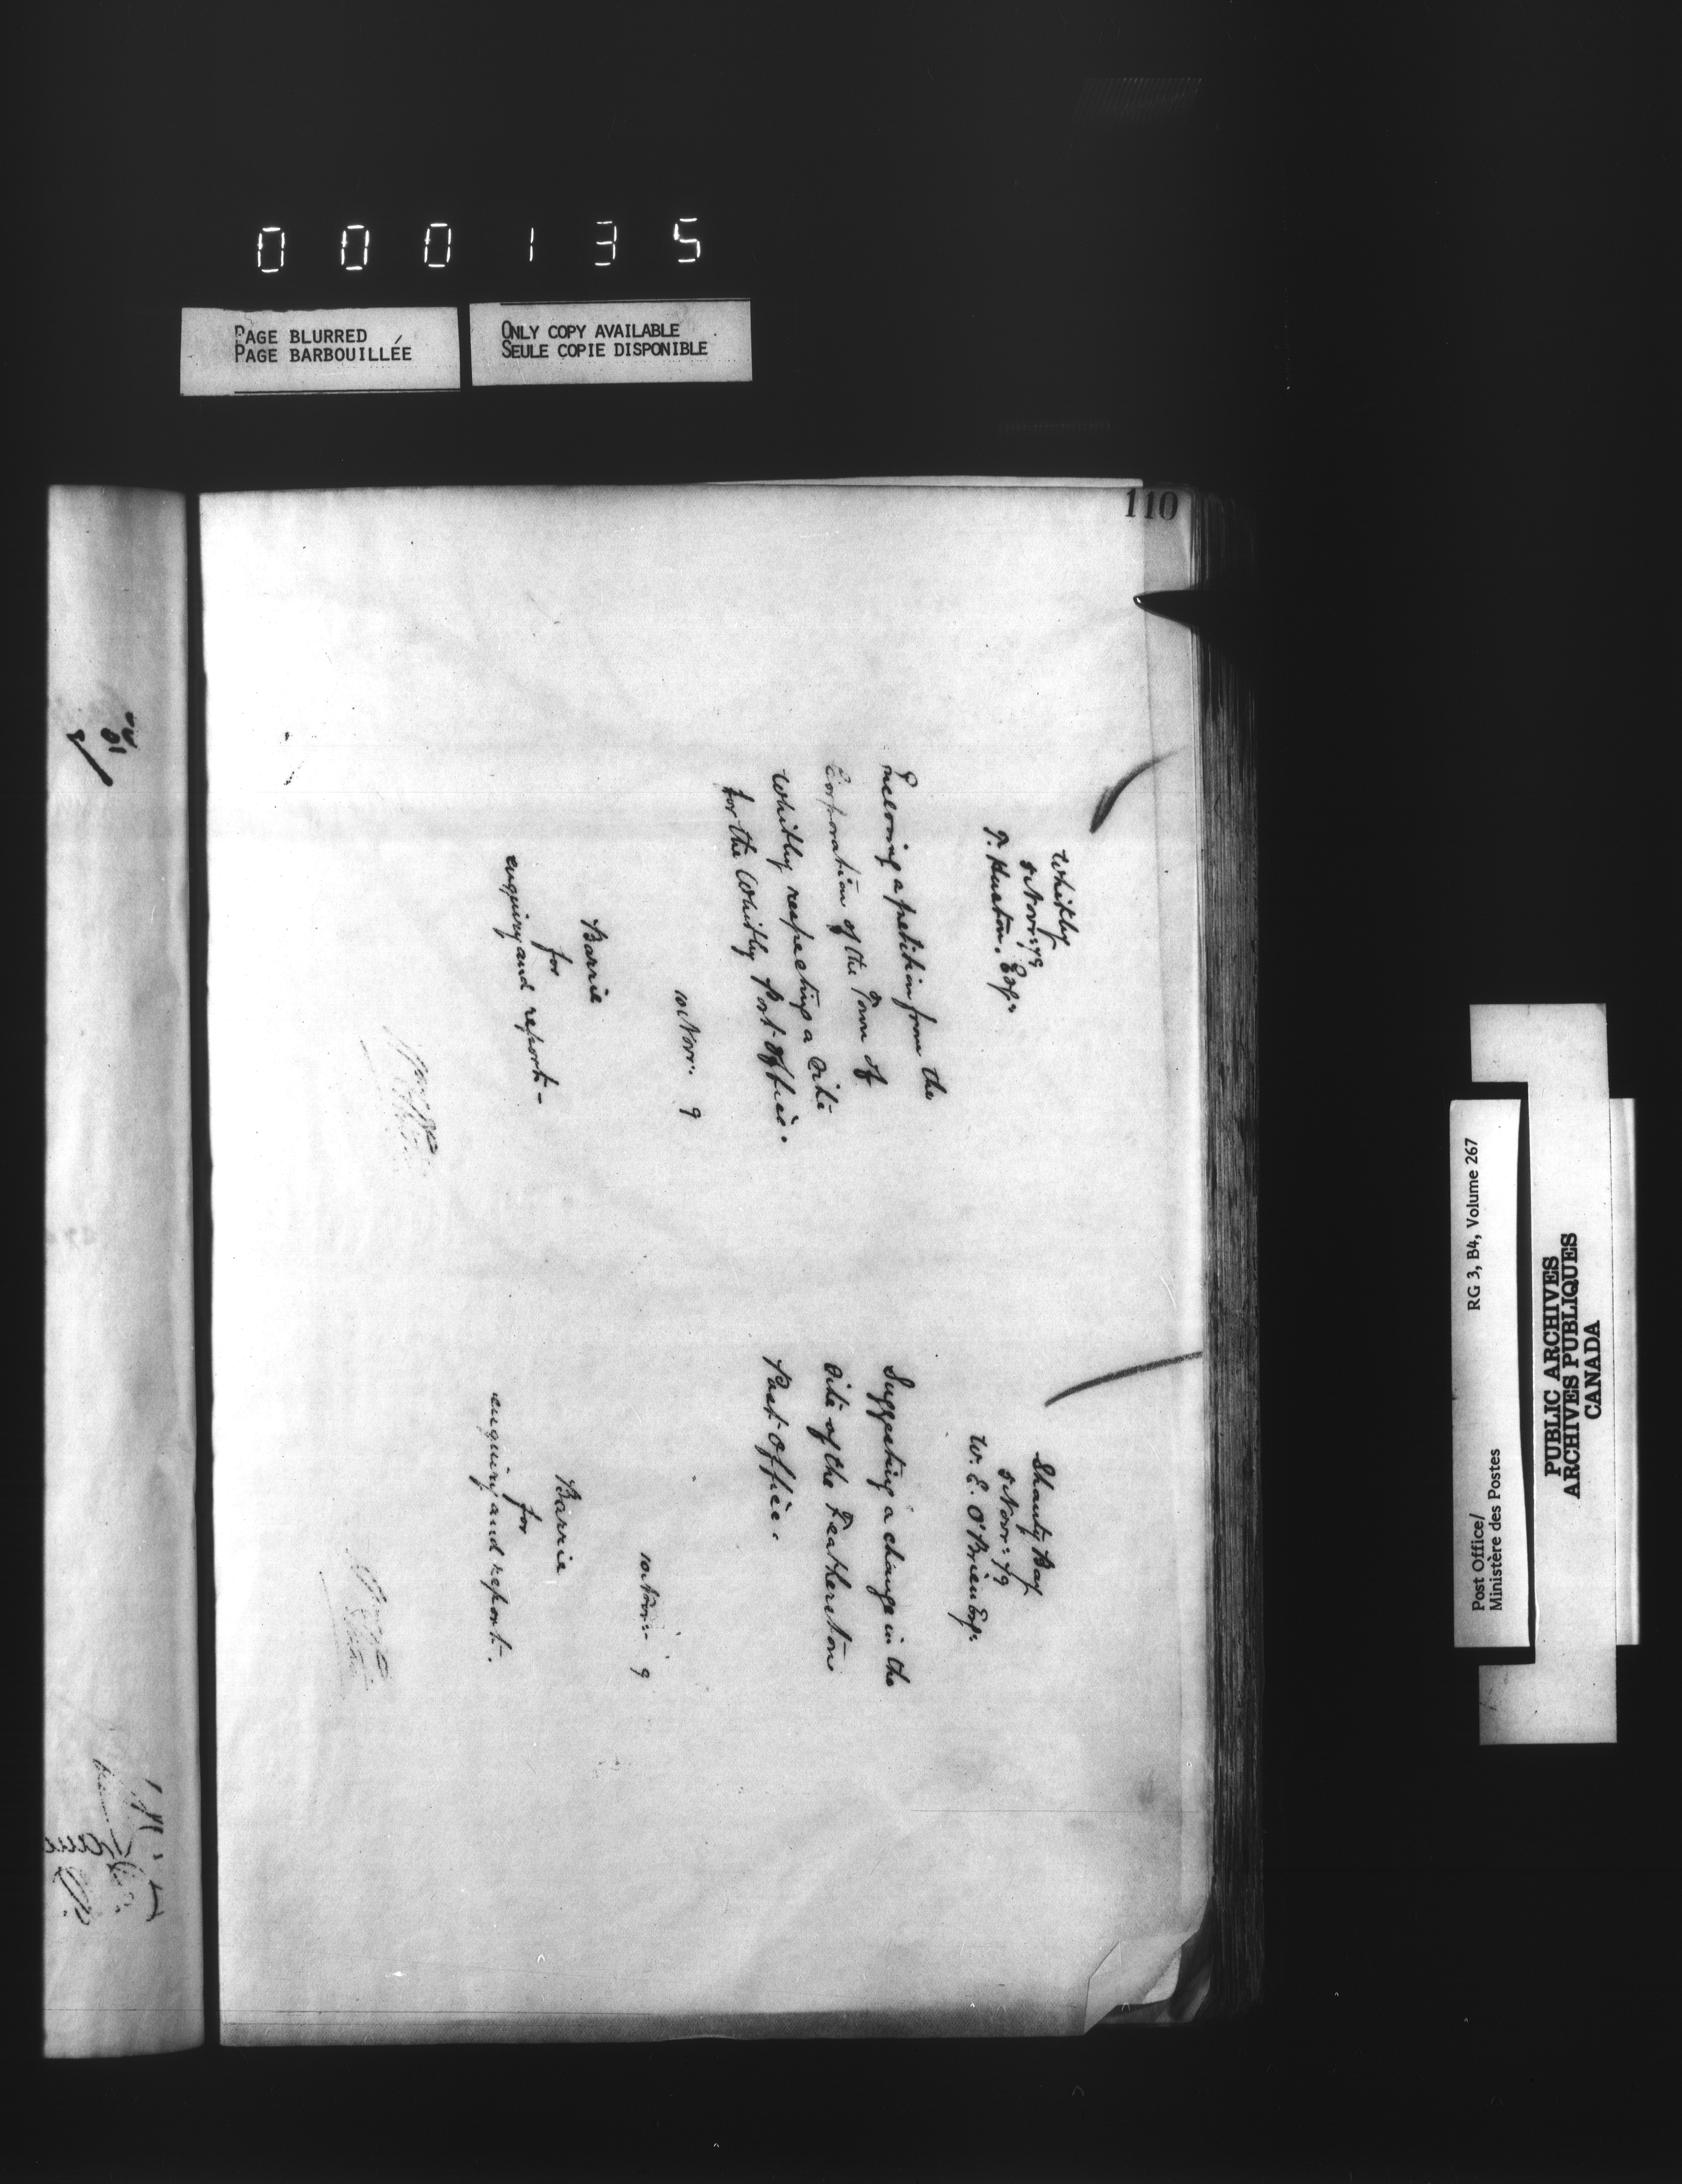 000135
PAGE BLURRED
PAGE BARBOUILLÉE
ONLY COPY AVAILABLE
SEULE COPIE DISPONIBLE
110
Whitby
5 Novr: 79
T. Huston. Esqr
Enclosing a petition from the
Corporation of the Town of
Whitby respecting a site
for the Whitby Post Office.
10 Novr: 9
Barrie
for
enquiry and report-
Shanty Bay
5 Novr: 79
W. E. O'Brien Esqr:
Suggesting a change in the
site of the Featherston
Post Office.
10 Novr: 9
Barrie
for
enquiry and report.
Post Office/
Ministère des Postes
RG 3, B4, Volume 267
PUBLIC ARCHIVES
ARCHIVES PUBLIQUES
CANADA